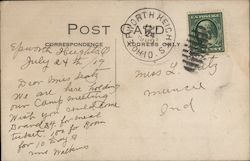 POST CARD
CORRESPONDENCE
ADDRESS ONLY
EPWORTH HEIGHTS
OHIO
Epworth Heights O
July 24th 19
Dear Miss
We are here holding
our Camp meeting
Wish you could come
Board $4 for meal
Ticket. 100 for Room
for 10 Days
Miss L.
Muncie
Ind